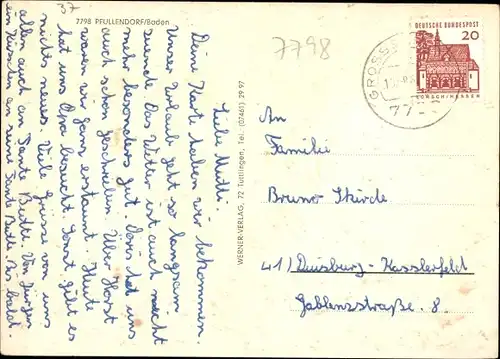 37
7798 PFULLENDORF/Baden
7798
DEUTSCHE BUNDESPOST
20
LORSCH/HESSEN
GROSS
77
Liebe Mutti
Deine Karte haben wir bekommen.
Unser Urlaub geht so langsam
zuende. Das Wetter ist auch nicht
mehr besonders gut. Doris hat uns
auch schon geschrieben. Über Horst
waren wir ganz erstaunt. Heute
hat uns Opa besucht. Sonst gibt es
nichts neues. Viele Grüsse von uns
allen auch an Tante Budte. Von Jürgen
ein Küsschen an seine Tante Budte. Bis bald
WERNER-VERLAG, 72 Tuttlingen, Tel.: (07461) 29 97
An
Familie
Bruno
41) Duisburg-Kasslerfeld
Gablenzstraße 8